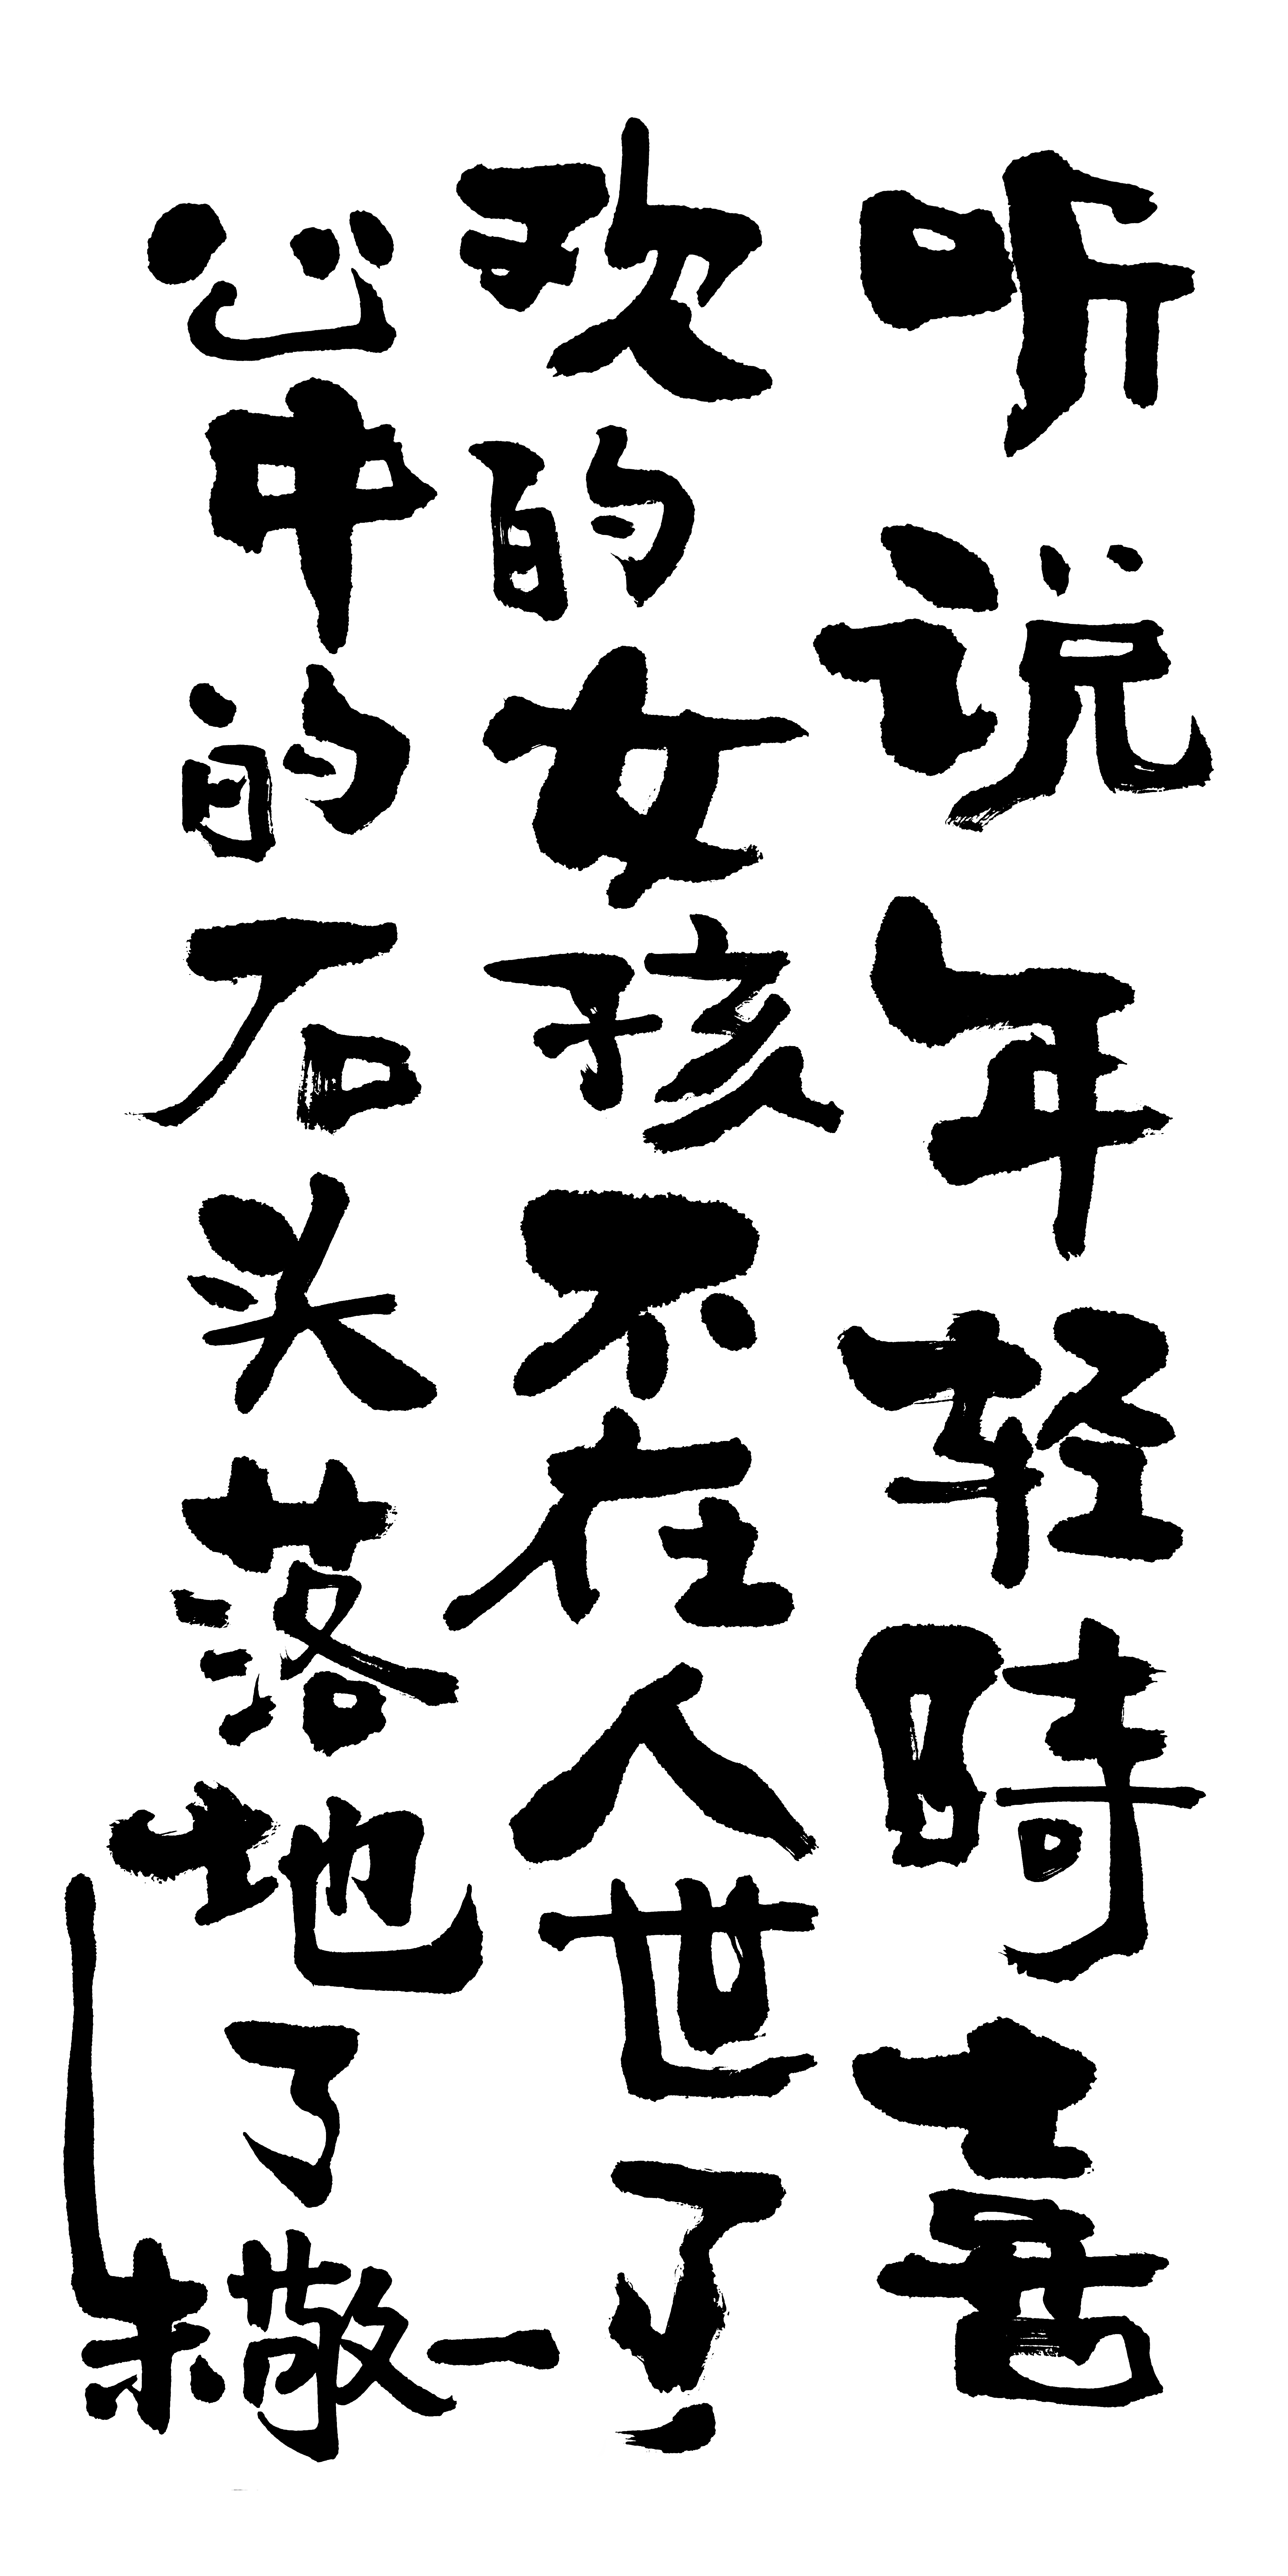 听说年轻時喜
欢的女孩不在人世了，
心中的石头落地了
朱敬一